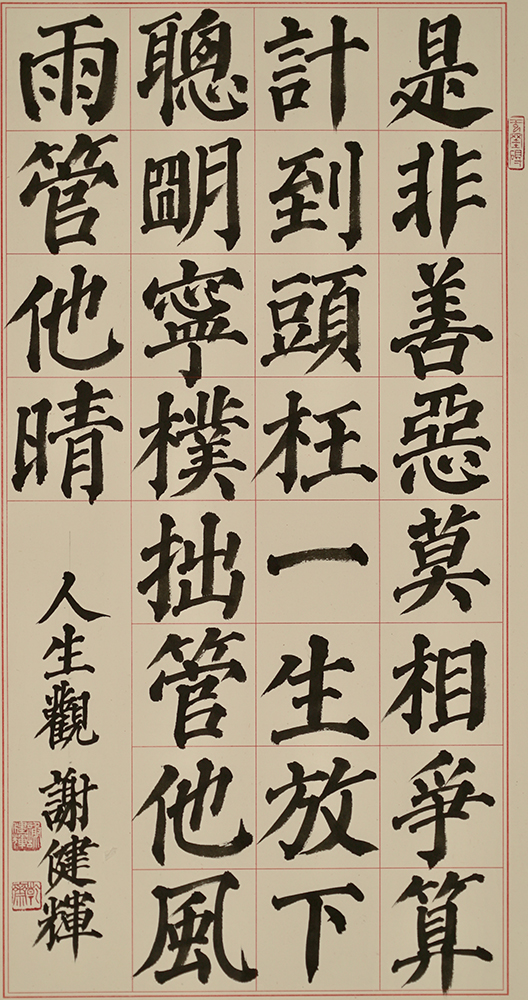 是非善惡莫相爭算
計到頭枉一生放下
聰明寧樸拙管他風
雨管他晴
人生觀 謝健輝